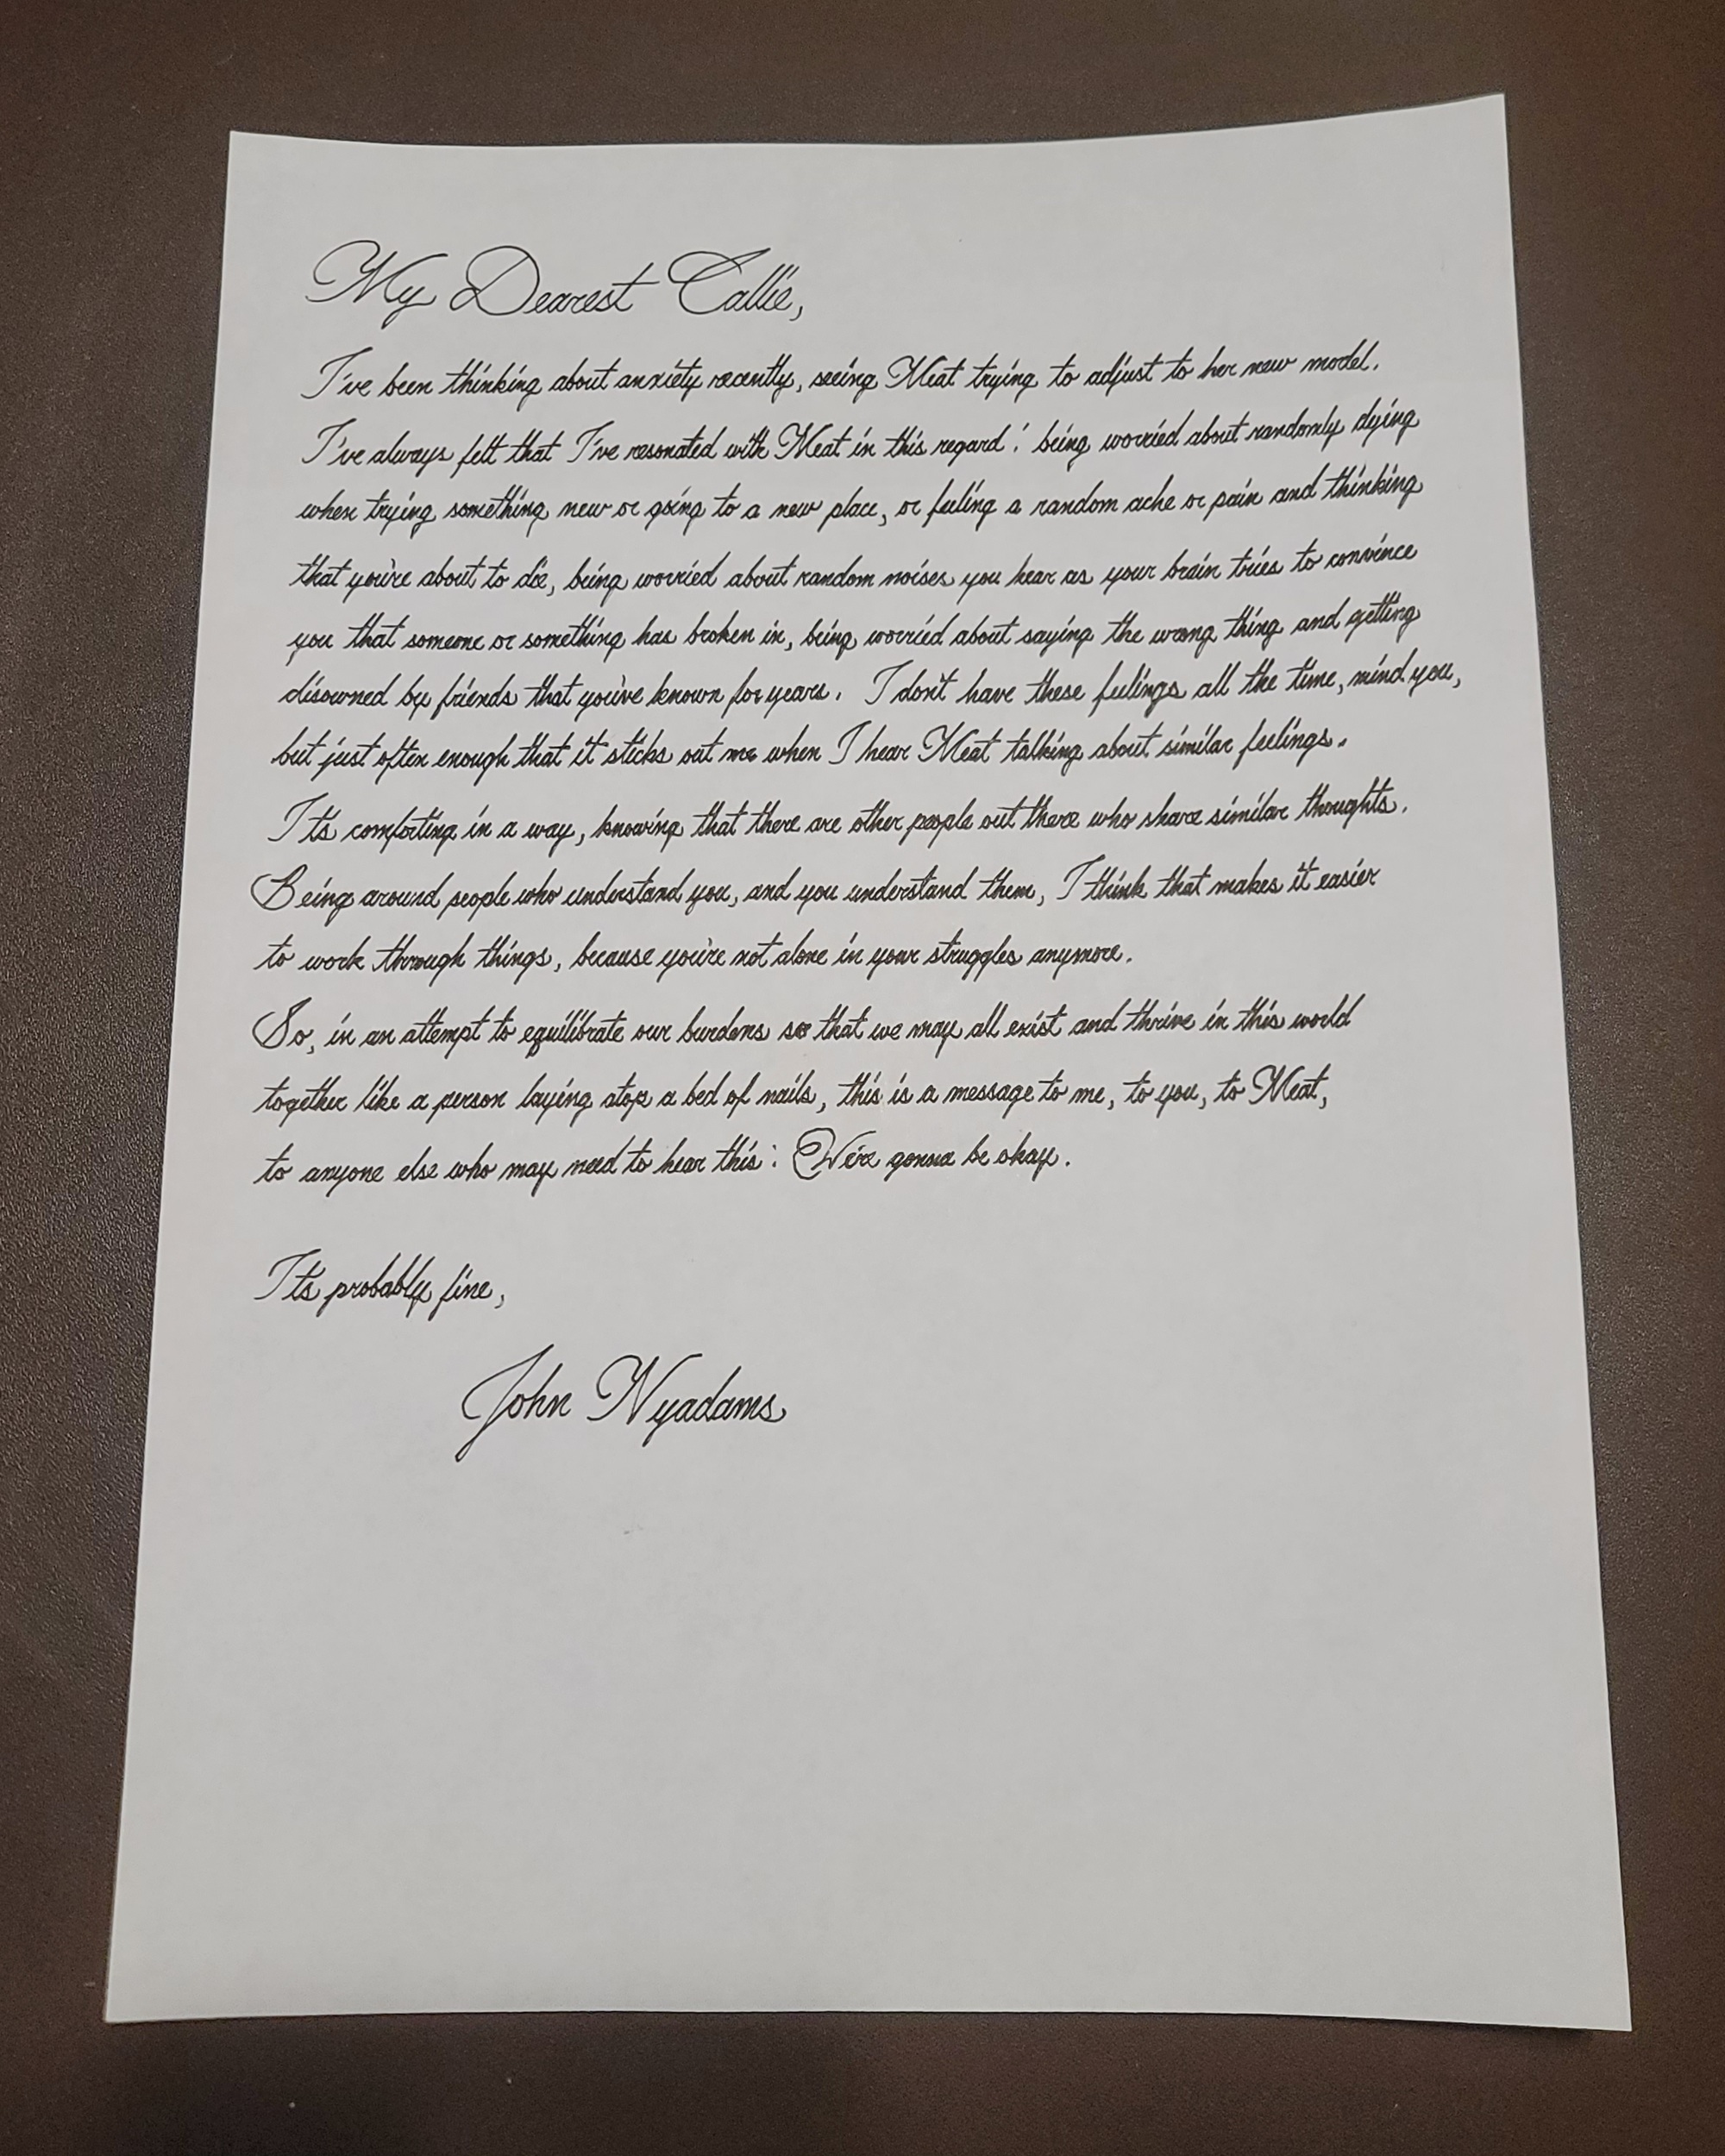 My Dearest Callie,
I've been thinking about anxiety recently, seeing Meat trying to adjust to her new model.
I've always felt that I've resonated with Meat in this regard: being worried about randomly dying
when trying something new or going to a new place, or feeling a random ache or pain and thinking
that you're about to die, being worried about random noises you hear as your brain tries to convince
you that someone or something has broken in, being worried about saying the wrong thing and getting
disowned by friends that you've known for years. I don't have these feelings all the time, mind you,
but just often enough that it sticks out me when I hear Meat talking about similar feelings.
It's comforting in a way, knowing that there are other people out there who share similar thoughts.
Being around people who understand you, and you understand them, I think that makes it easier
to work through things, because you're not alone in your struggles anymore.
So, in an attempt to equilibrate our burdens so that we may all exist and thrive in this world
together like a person laying atop a bed of nails, this is a message to me, to you, to Meat,
to anyone else who may need to hear this: We're gonna be okay.
It's probably fine,
John Nyadams